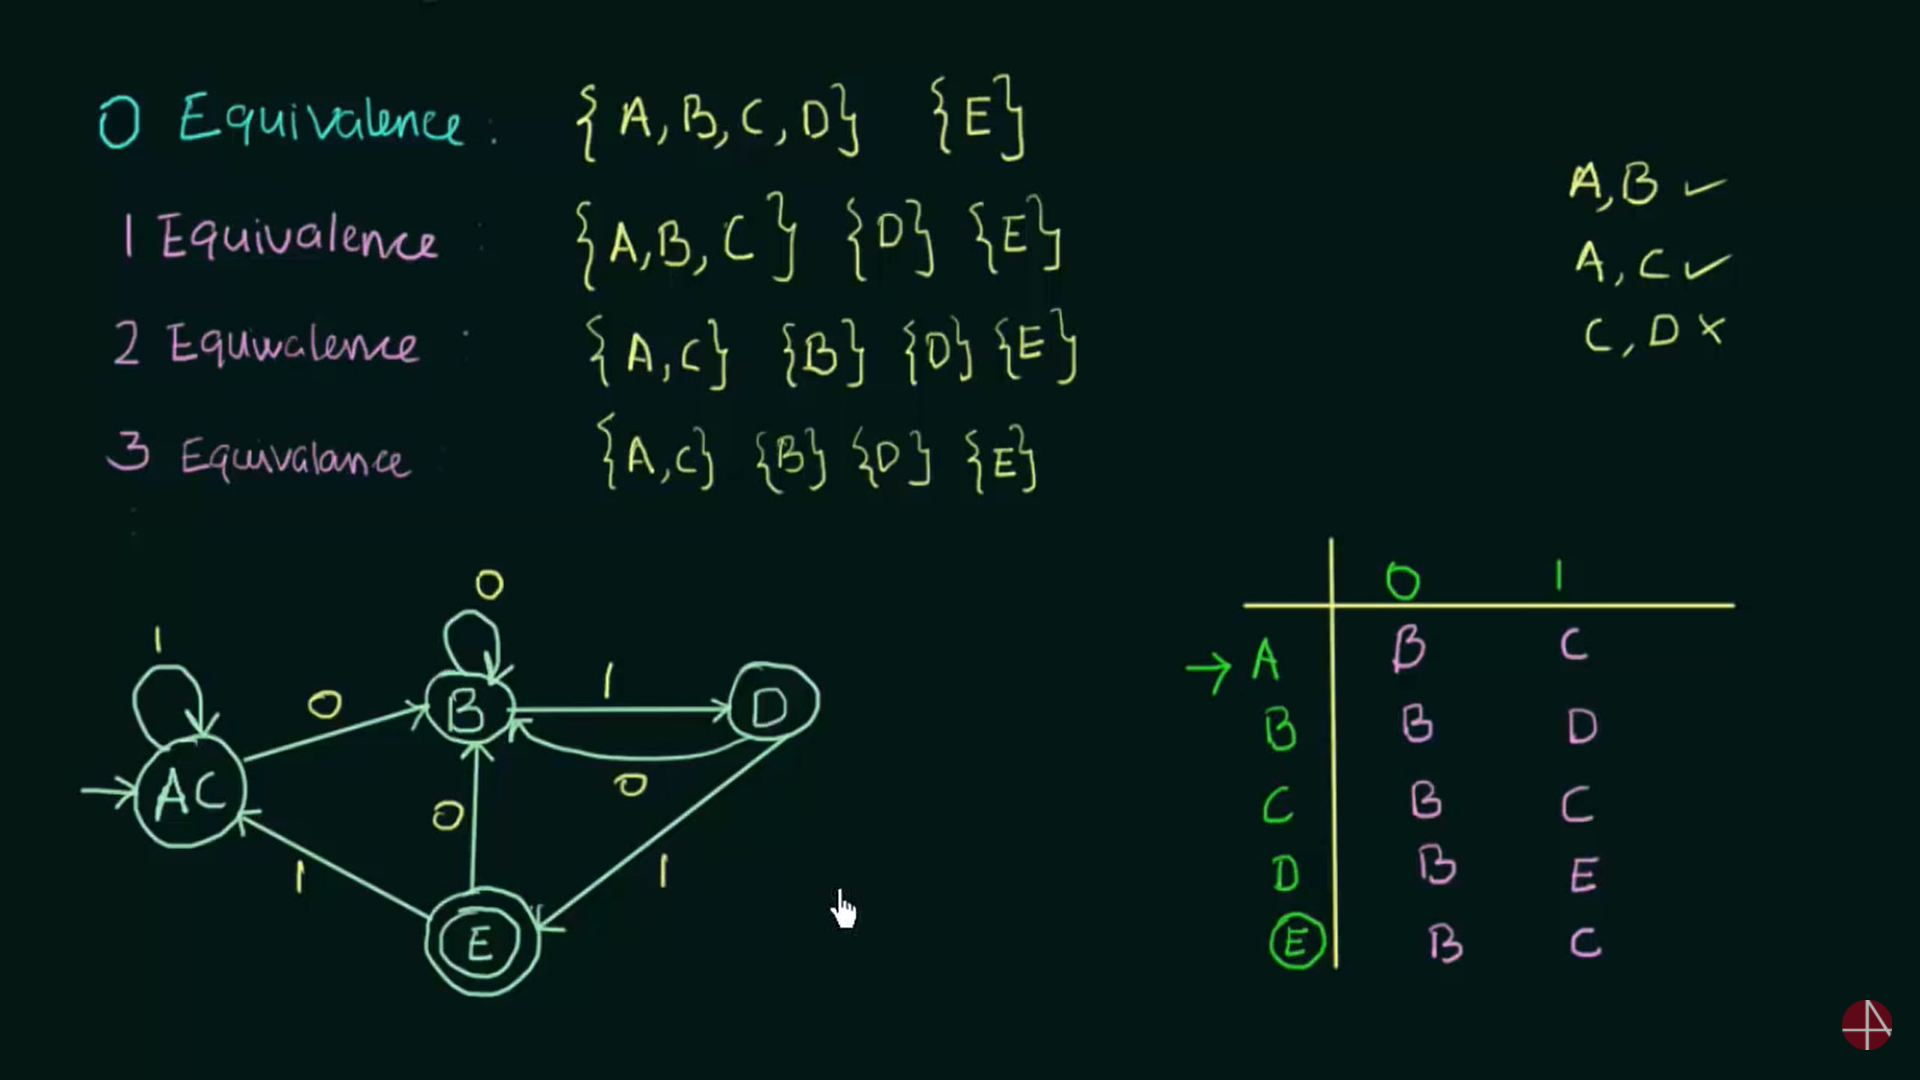 0 Equivalence : {A, B, C, D} {E}
1 Equivalence : {A, B, C} {D} {E}
2 Equivalence : {A, C} {B} {D} {E}
3 Equivalance : {A, C} {B} {D} {E}
A, B ✓
A, C ✓
C, D ×
0
1
0
1
B
D
AC
0
0
1
1
E
0 1
→ A B C
B B D
C B C
D B E
E B C